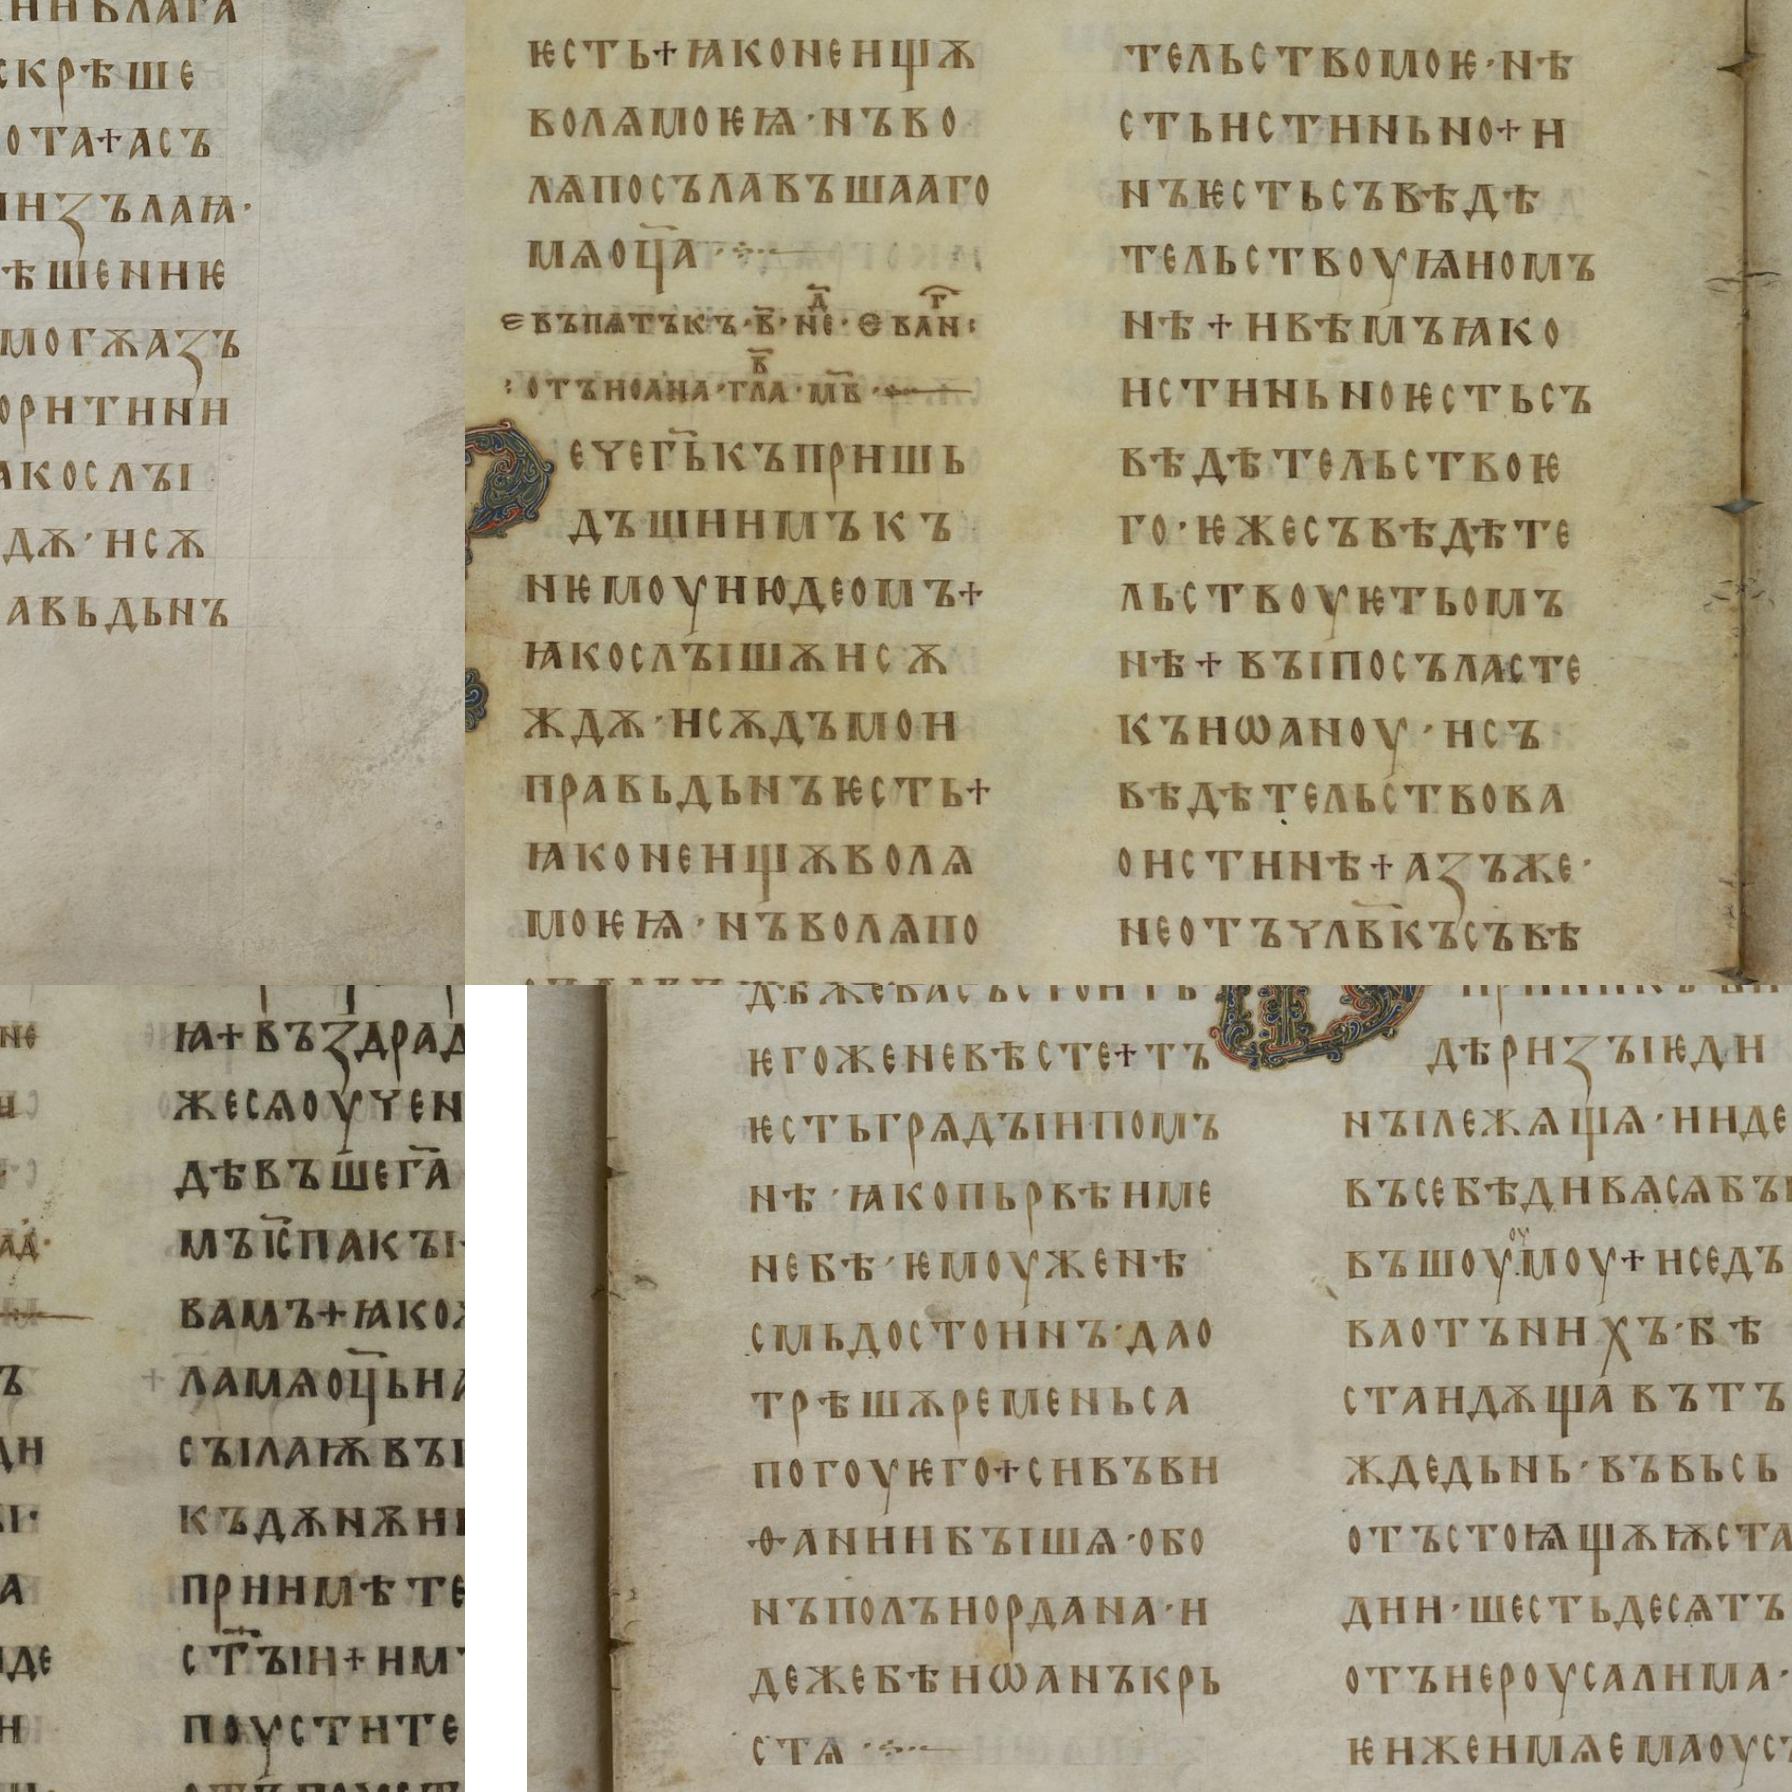 скрѣше
ота+асъ
инзълаꙗ·
ѣшениѥ
могѫазъ
оритини
акослꙑ
дѫ·исѫ
авьдьнъ
ѥсть+ꙗконеищѫ
волѧмоѥꙗ·нъво
лѧпосълавъшааго
мѧоц҃а
евъпѧтъкъ·в҃·не·ѳ еван:
:отъиоана·гла·мв·
ечег҃ькъпришь
дъшиимъкъ
нѥмоуиюдеомъ+
ꙗкослꙑшѫисѫ
ждѫ·исѫдъмои
правьдьнъѥсть+
ꙗконеищѫволѧ
моѥꙗ·нъволѧпо
тельствомоѥ·нѣ
стьистиньно+и
нъѥстьсъвѣдѣ
тельствоуѩиомъ
нѣ+ивѣмъꙗко
истиньноѥстьсъ
вѣдѣтельствоѥ
го·ѥжесъвѣдѣте
льствоуѥтьомъ
нѣ+вꙑпосъласте
къиѡаноу·исъ
вѣдѣтельствова
оистинѣ+азъже·
неотъчл҃вкъсъвѣ
ꙗ+въздрад
жесѧоучен
дѣвъшег҃а
мъіс҃пакꙑ
вамъ+ꙗко
ламѧоц҃ьна
сꙑлаѭвꙑ
къдѫнѫни
приимѣте
ст҃ꙑи+им
поустите
ѥгоженевѣсте+тъ
ѥстьгрѧдꙑипомъ
нѣ·ꙗкопьрвѣиме
небѣ·ѥмоуженѣ
смьдостоинъ·дао
трѣшѫременьса
погоуѥго+сивъви
ѳаниибꙑшѧ·обо
нъполъиордана·и
дежебѣиѡанъкрь
стѧ
дѣризꙑѥди
нꙑлежѧщѧ·ииде
въсебѣдивѧсѧбꙑ
въшоумоу+иседъ
ваотънихъ·бѣ
стаидѫщавътъ
ждедьнь·въвьсь
отъстоꙗщѫѭста
дии·шестьдесѧтъ
отъиероусалима·
ѥиженмѧемаоуст